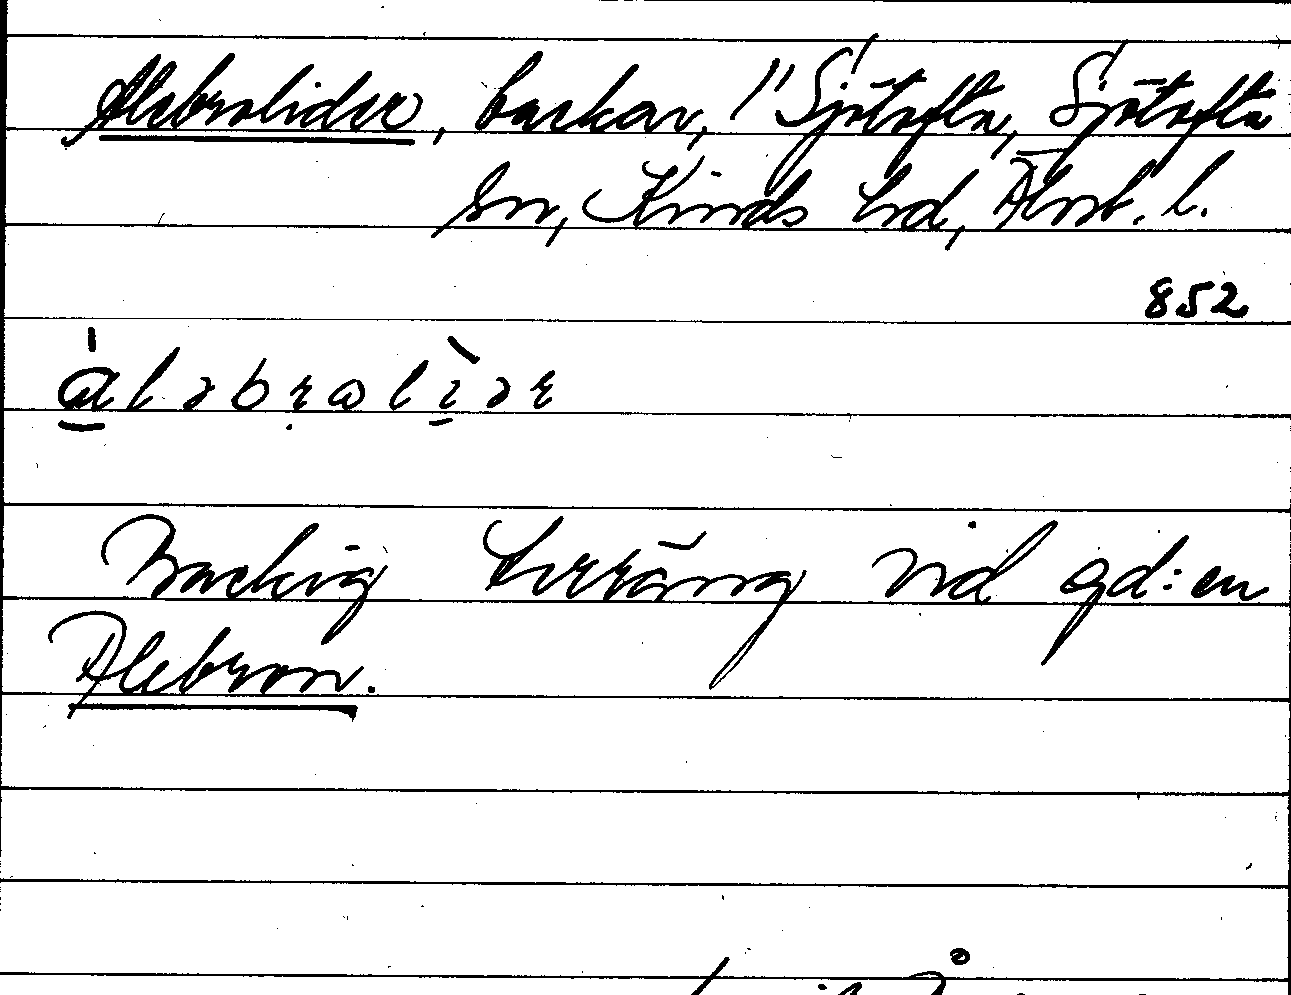 Alebralider, backar, 1" Sjötofta, Sjötofta
sn, Kinds hd, Älvsb. l.
852
aləbralìər
Backig terräng vid gd:en
Alebron.